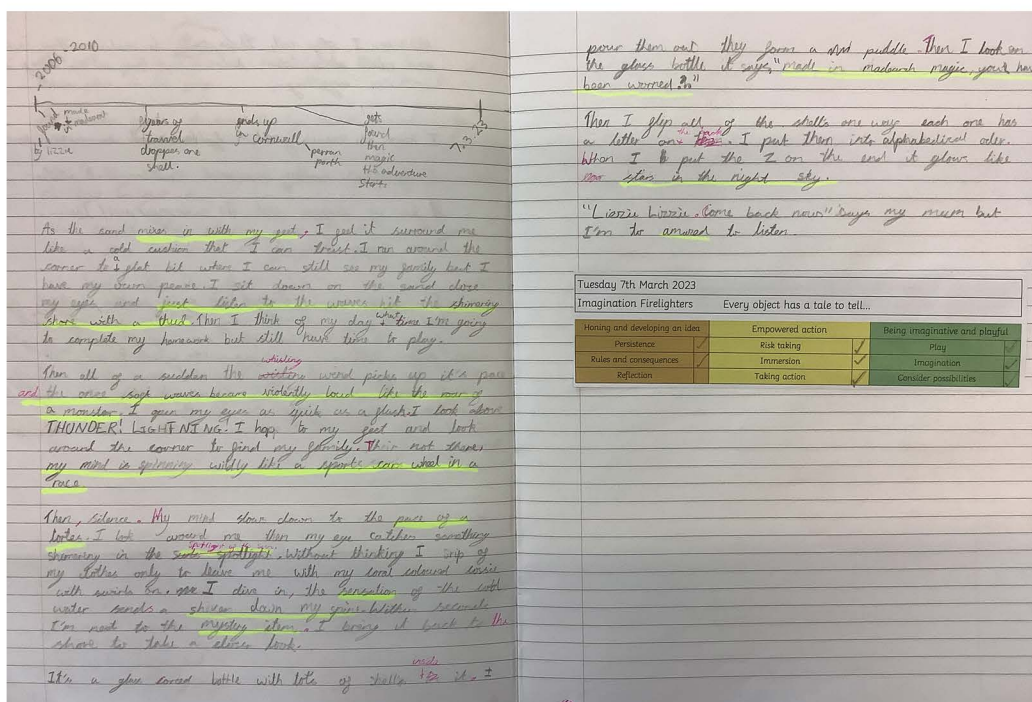 2006 - 2010
found
by Lizzie
made
in madearch
years of
travel
droppes one
shell.
ends up
in cornwell
perran
porth
gets
found
then
magic
the adventure
starts
7.3.23
As the sand mixes in with my feet, I feel it surround me
like a cold cushion that I can trust. I ran around the
corner to a flat bit where I can still see my family but I
have my own peace. I sit down on the sand close
my eyes and just listen to the waves hit the shimering
shore with a thud. Then I think of my day what time I'm going
to complete my homework but still have time to play.
Then all of a sudden the whisling wind picks up it's pace
and the once soft waves became violently loud like the roar of
a monster. I open my eyes as quik as a flash. I look above
THUNDER! LIGHTNING! I hop to my feet and look
around the corner to find my family. Their not there,
my mind is spinning wildly like a sports car wheel in a
race
Then, silence. My mind slows down to the pace of a
I look around me then my eye catches something
shimering in the spotlight of the Without thinking I srip of
my clothes only to leave me with my coral coloured cossie
with swirls on. I dive in, the sensation of the cold
water sends a shiver down my spine. Within seconds
I'm next to the mystery item. I bring it back to the
shore to take a closer look.
It's a glass corced bottle with lots of shells inside it. I
pour them out they form a puddle. Then I look on
the glass bottle it says, "made in madearch magic, you've
been worned.."
Then I flip all of the shells one way each one has
a letter on the back. I put them into alphabedical oder.
When I put the Z on the end it glows like
stars in the night sky.
"Lizzie Lizzie. Come back now" Says my mum but
I'm to amused to listen.
Tuesday 7th March 2023
Imagination Firelighters Every object has a tale to tell...
Honing and developing an idea Empowered action Being imaginative and playful
Persistence Risk taking Play
Rules and consequences Immersion Imagination
Reflection Taking action Consider possibilities